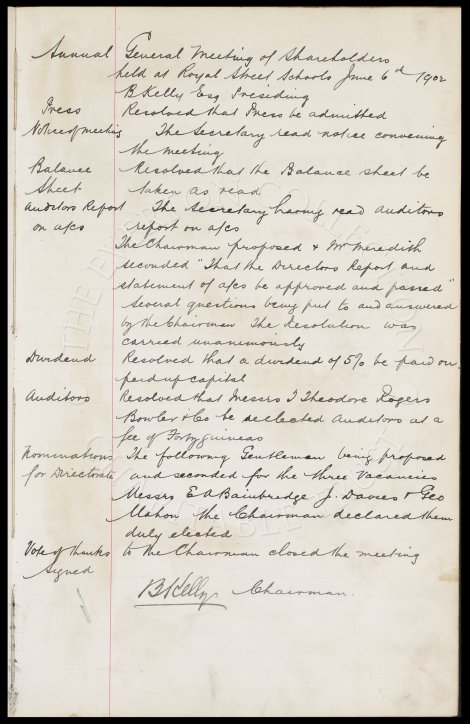 Annual General Meeting of Shareholders
held at Royal Street Schools June 6th 1902
B Kelly Esq Presiding
Press Resolved that Press be admitted
Notice of meeting The Secretary read notice convening
the meeting
Balance Resolved that the Balance sheet be
Sheet taken as read
Auditors Report The Secretary having read auditors
on a/cs report on a/cs
The Chairman proposed & Mr Meredith
seconded "That the Directors Report and
statement of a/cs be approved and passed"
Several questions being put to and answered
by the Chairman The Resolution was
carried unanimously
Dividend Resolved that a dividend of 5% be paid on
paid up capital
Auditors Resolved that Messrs T Theodore Rogers
Bowler & Co be reelected Auditors at a
fee of Forty guineas
Nominations The following Gentleman being proposed
for Directorate and seconded for the three Vacancies
Messrs E A Bainbridge J. Davies & Geo
Mahon the Chairman declared them
duly elected
Vote of thanks to the Chairman closed the meeting
Signed
B Kelly Chairman.
THE EVERTON COLLECTION